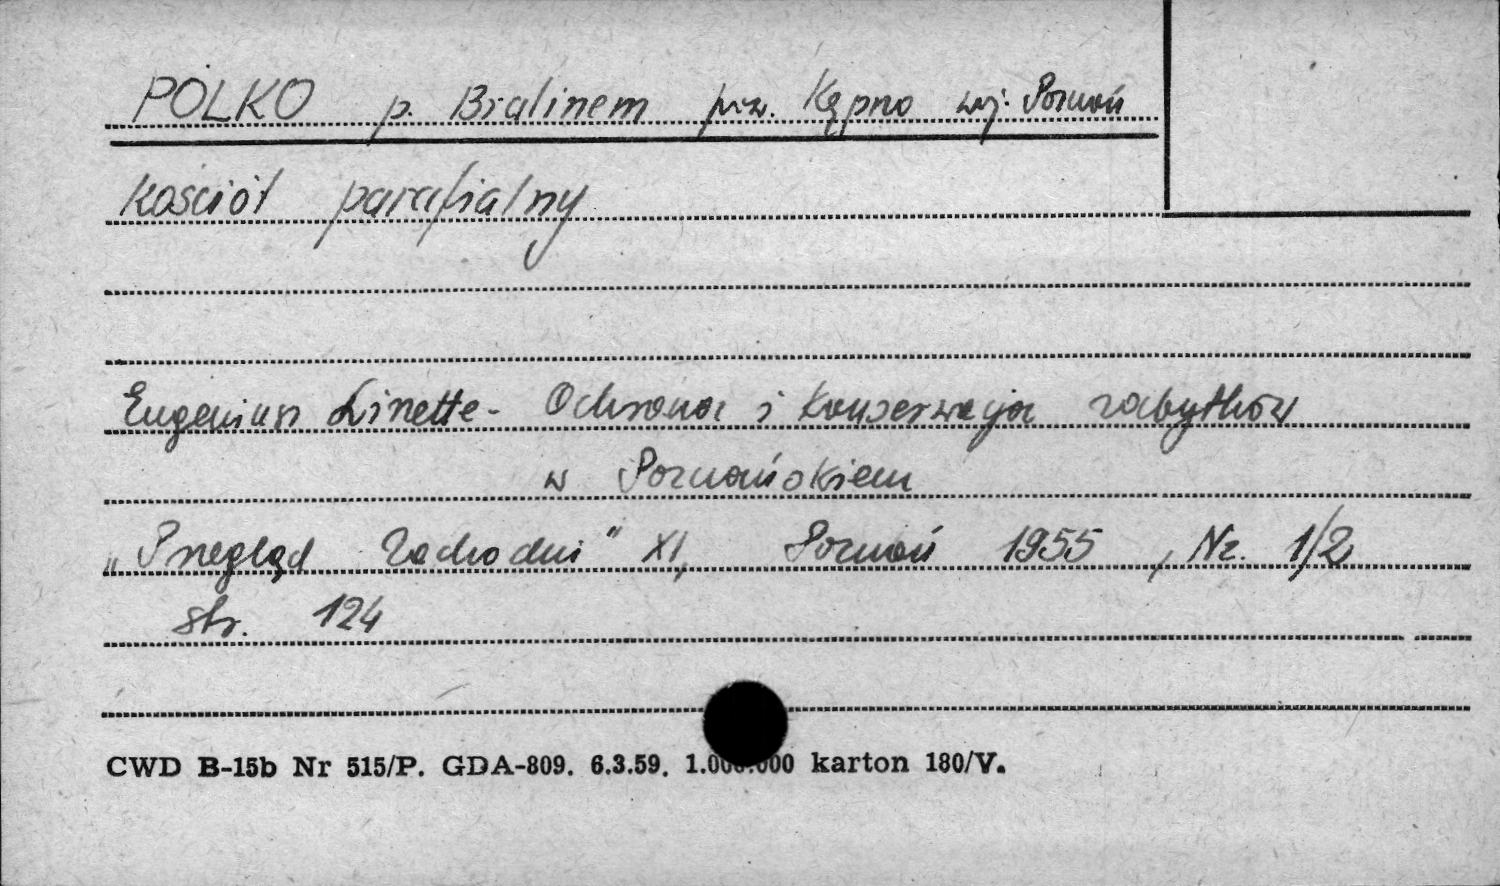 PÓLKO p. Bralinem pow. Kępno woj. Poznań
Kościół parafialny
Eugeniusz Linette - Ochrona i konserwacja zabytków
w Poznańskiem
„Przegląd Zachodni" XI, Poznań 1955, Nr. 1/2
str. 124
CWD B-15b Nr 515/P. GDA-809. 6.3.59. 1.000.000 karton 180/V.